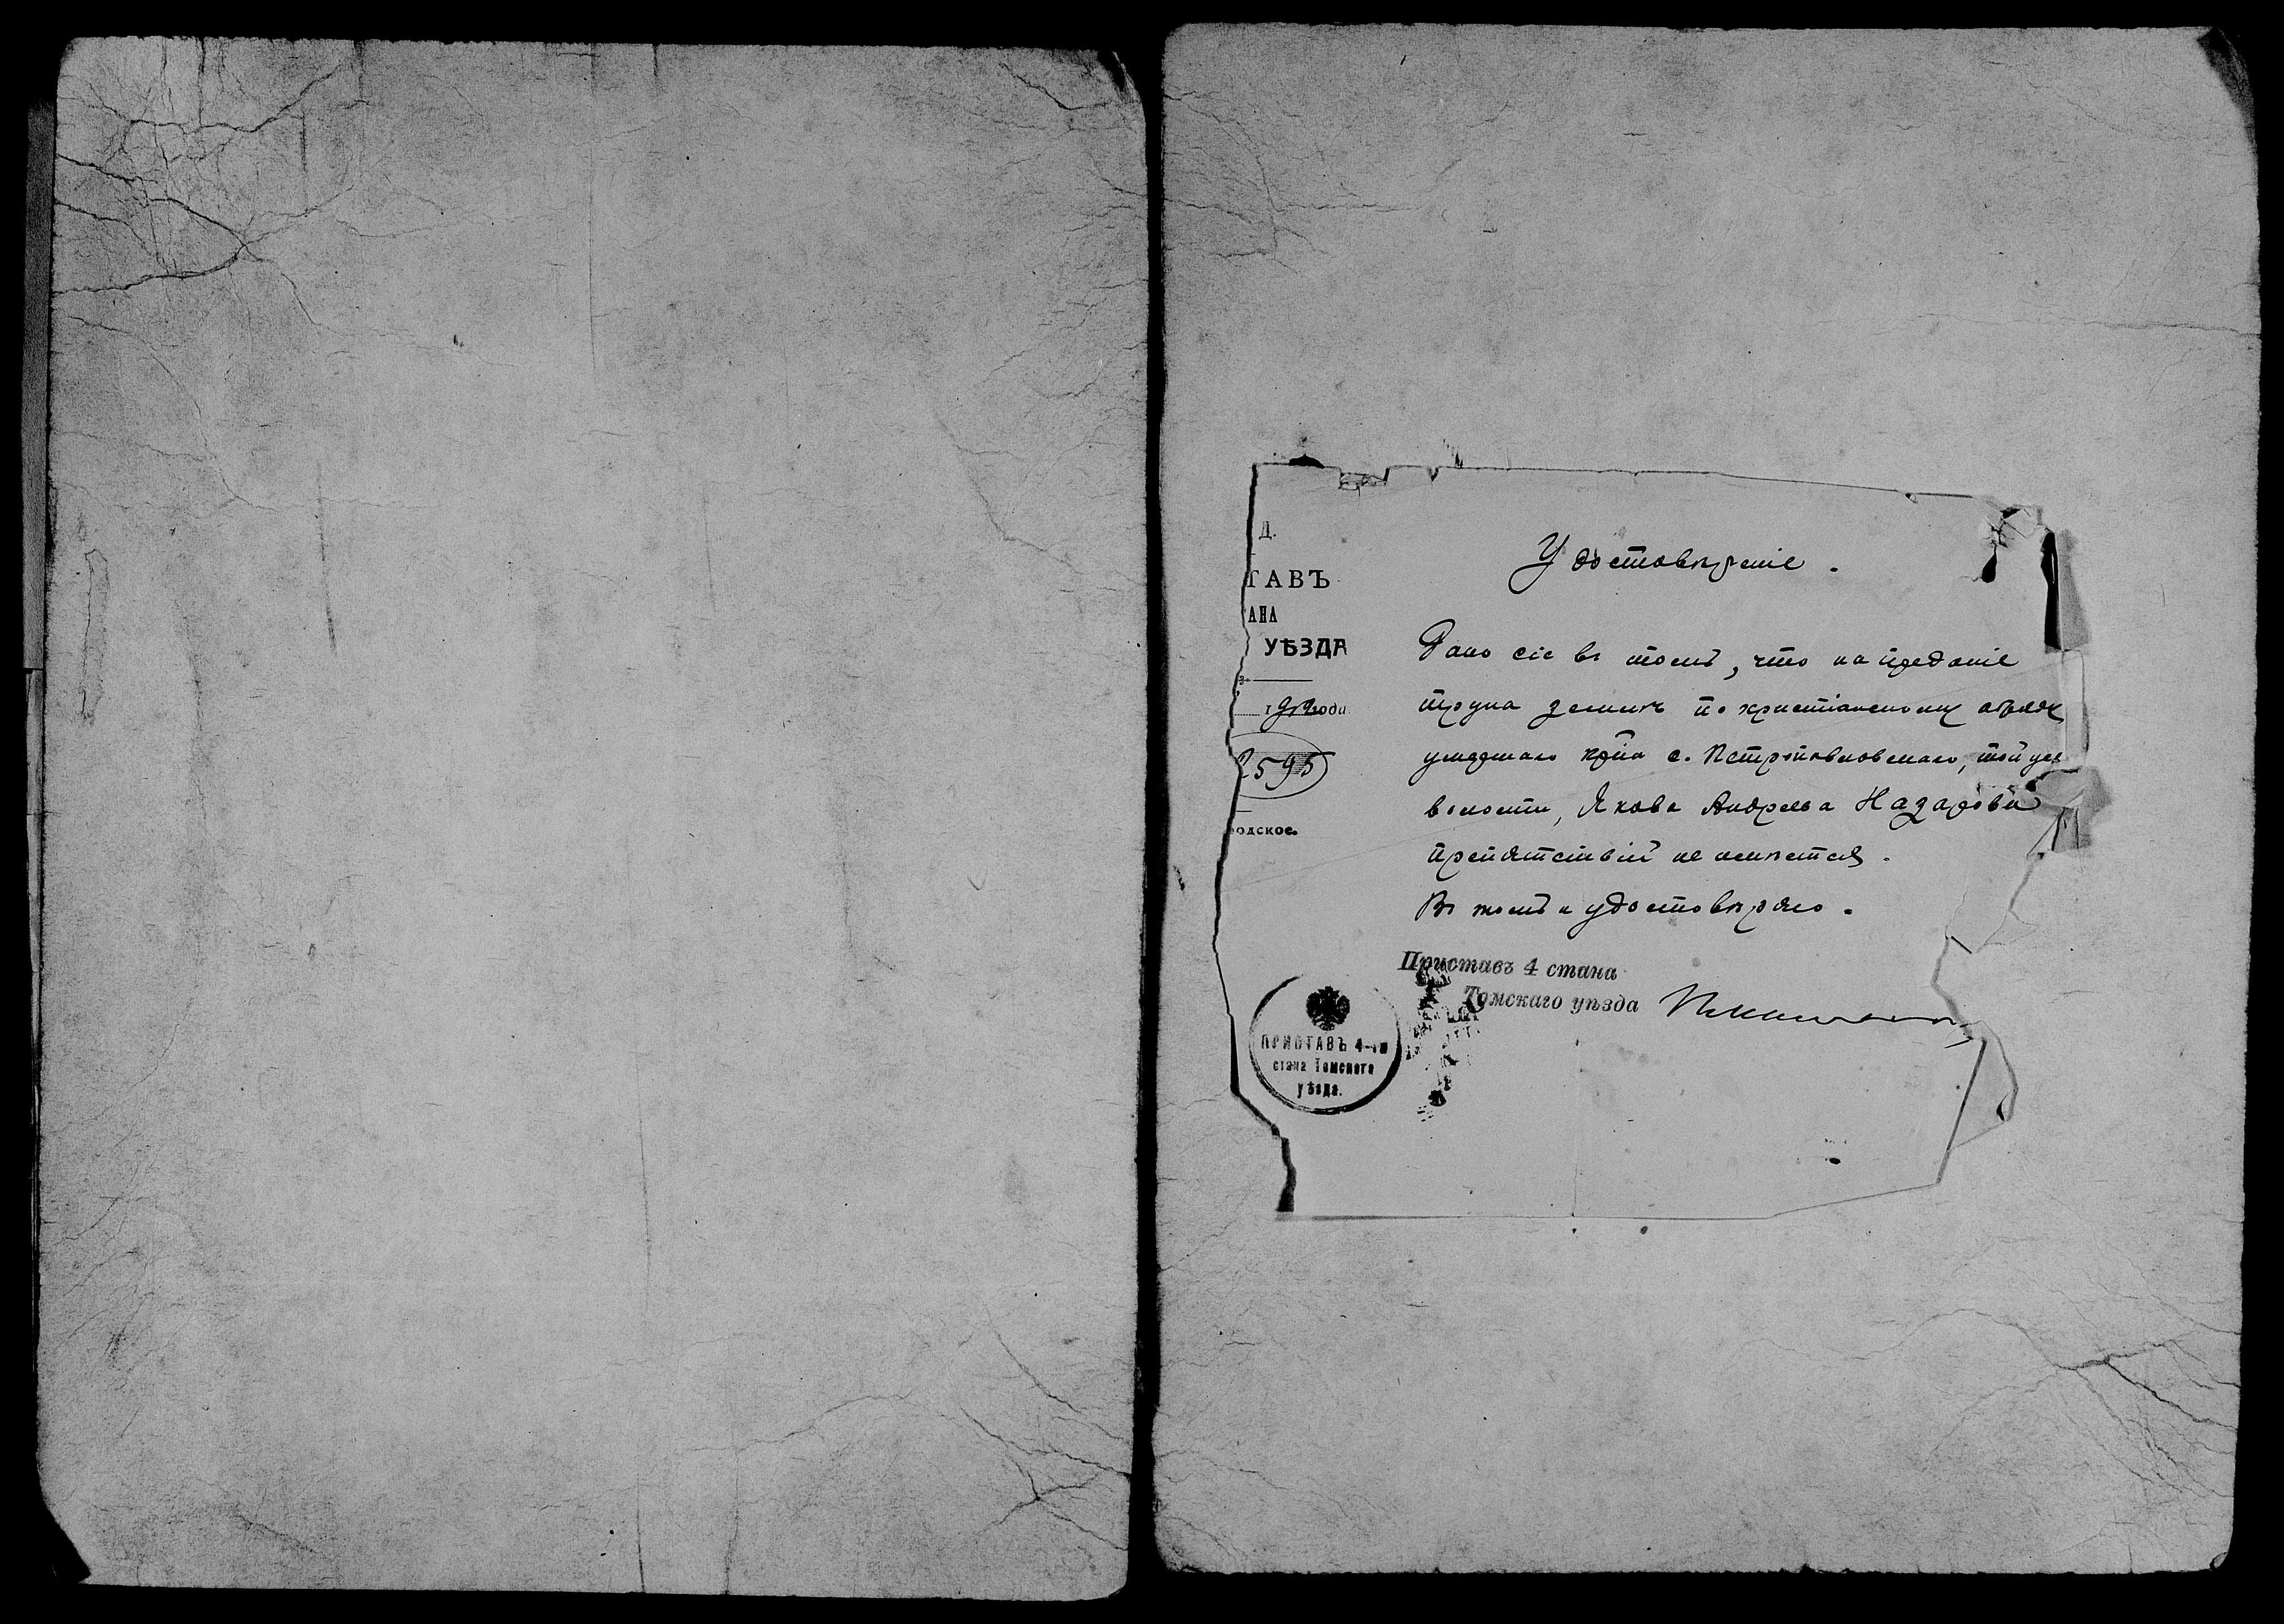 Д.
ТАВЪ
АНА
УѢЗДА
года
2595
одское.
Удостовѣреніе.
Дано сіе въ томъ, что на преданіе
трупа землѣ по христіанскому обряду
умершаго кр-на с. Петропавловскаго, той же
волости, Якова Андреева Назарова
препятствій не имѣется.
Въ томъ и удостовѣряю.
Приставъ 4 стана
Томскаго уѣзда
ПРИСТАВЪ 4-го
стана Томскаго
уѣзда.